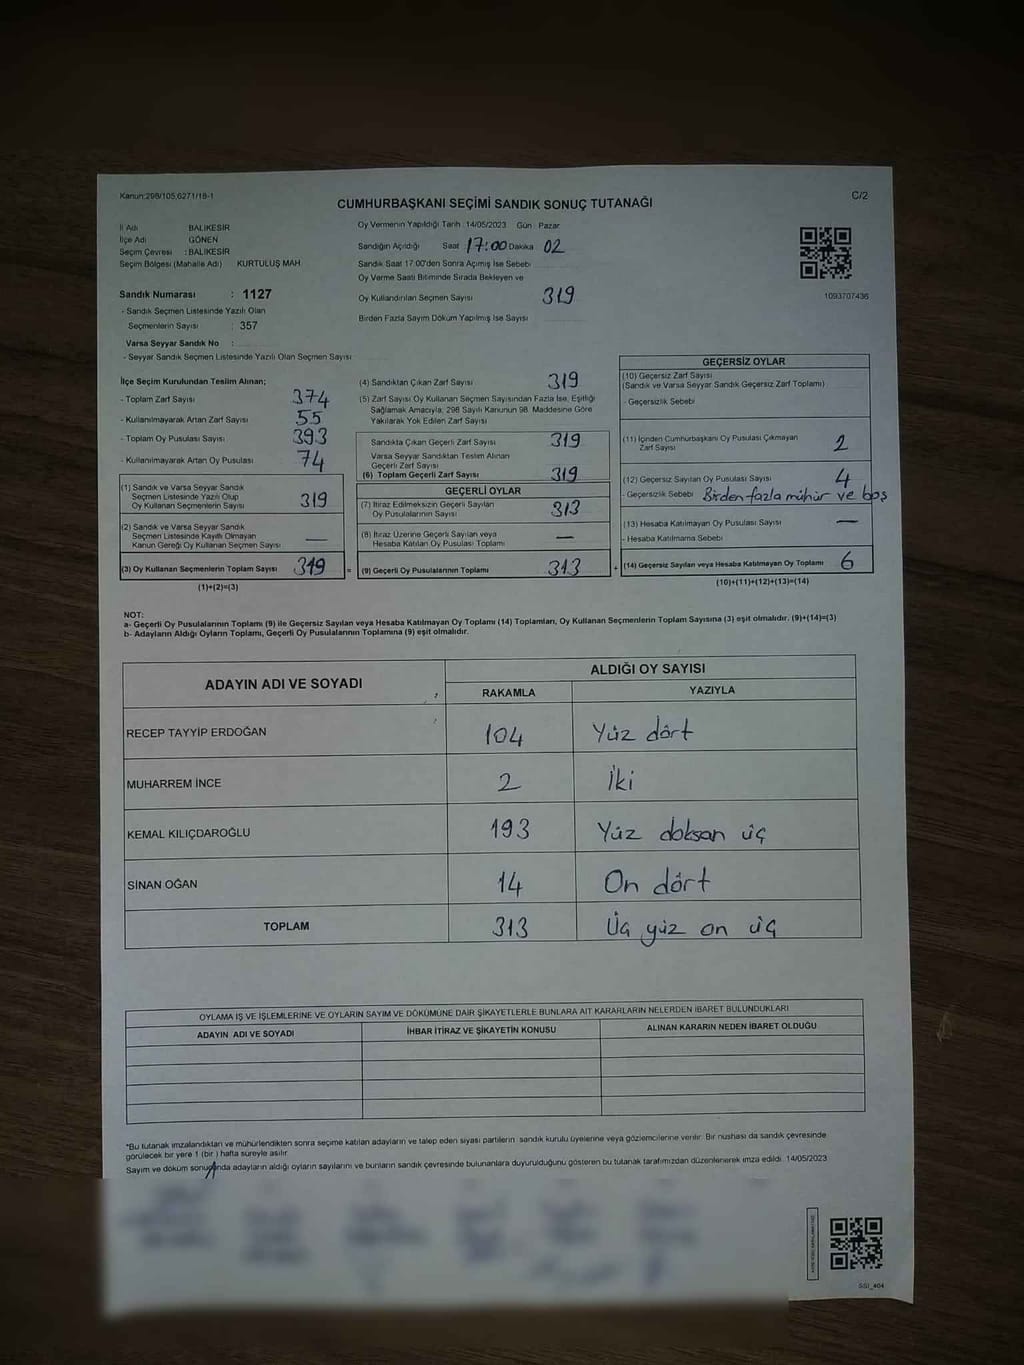 Kanun:298/105,6271/18-1
C/2
CUMHURBAŞKANI SEÇİMİ SANDIK SONUÇ TUTANAĞI
İl Adı BALIKESİR
İlçe Adı GÖNEN
Seçim Çevresi : BALIKESİR
Seçim Bölgesi (Mahalle Adı) KURTULUŞ MAH.
Sandık Numarası : 1127
- Sandık Seçmen Listesinde Yazılı Olan
Seçmenlerin Sayısı : 357
Varsa Seyyar Sandık No :
- Seyyar Sandık Seçmen Listesinde Yazılı Olan Seçmen Sayısı
Oy Vermenin Yapıldığı Tarih 14/05/2023 Gün Pazar
Sandığın Açıldığı Saat 17:00 Dakika 02
Sandık Saat 17:00'den Sonra Açımış İse Sebebi
Oy Verme Saati Bitiminde Sırada Bekleyen ve
Oy Kullandırılan Seçmen Sayısı 319
Birden Fazla Sayım Döküm Yapılmış İse Sayısı
1093707436
İlçe Seçim Kurulundan Teslim Alınan;
- Toplam Zarf Sayısı 374
- Kullanılmayarak Artan Zarf Sayısı 55
- Toplam Oy Pusulası Sayısı 393
- Kullanılmayarak Artan Oy Pusulası 74
(1) Sandık ve Varsa Seyyar Sandık
Seçmen Listesinde Yazılı Olup
Oy Kullanan Seçmenlerin Sayısı 319
(2) Sandık ve Varsa Seyyar Sandık
Seçmen Listesinde Kayıtlı Olmayan
Kanun Gereği Oy Kullanan Seçmen Sayısı —
(3) Oy Kullanan Seçmenlerin Toplam Sayısı 319 =
(1)+(2)=(3)
(4) Sandıktan Çıkan Zarf Sayısı 319
(5) Zarf Sayısı Oy Kullanan Seçmen Sayısından Fazla İse, Eşitliği
Sağlamak Amacıyla; 298 Sayılı Kanunun 98. Maddesine Göre
Yakılarak Yok Edilen Zarf Sayısı
Sandıkta Çıkan Geçerli Zarf Sayısı 319
Varsa Seyyar Sandıktan Teslim Alınan
Geçerli Zarf Sayısı
(6) Toplam Geçerli Zarf Sayısı 319
GEÇERLİ OYLAR
(7) İtiraz Edilmeksizin Geçerli Sayılan
Oy Pusulalarının Sayısı 313
(8) İtiraz Üzerine Geçerli Sayılan veya
Hesaba Katılan Oy Pusulası Toplamı —
(9) Geçerli Oy Pusulalarının Toplamı 313 +
GEÇERSİZ OYLAR
(10) Geçersiz Zarf Sayısı
(Sandık ve Varsa Seyyar Sandık Geçersiz Zarf Toplamı)
- Geçersizlik Sebebi
(11) İçinden Cumhurbaşkanı Oy Pusulası Çıkmayan
Zarf Sayısı 2
(12) Geçersiz Sayılan Oy Pusulası Sayısı 4
- Geçersizlik Sebebi Birden fazla mühür ve boş
(13) Hesaba Katılmayan Oy Pusulası Sayısı —
- Hesaba Katılmama Sebebi
(14) Geçersiz Sayılan veya Hesaba Katılmayan Oy Toplamı 6
(10)+(11)+(12)+(13)=(14)
NOT:
a- Geçerli Oy Pusulalarının Toplamı (9) ile Geçersiz Sayılan veya Hesaba Katılmayan Oy Toplamı (14) Toplamları, Oy Kullanan Seçmenlerin Toplam Sayısına (3) eşit olmalıdır. (9)+(14)=(3)
b- Adayların Aldığı Oyların Toplamı, Geçerli Oy Pusulalarının Toplamına (9) eşit olmalıdır.
ADAYIN ADI VE SOYADI
ALDIĞI OY SAYISI
RAKAMLA YAZIYLA
RECEP TAYYİP ERDOĞAN 104 Yüz dört
MUHARREM İNCE 2 İki
KEMAL KILIÇDAROĞLU 193 Yüz doksan üç
SİNAN OĞAN 14 On dört
TOPLAM 313 Üç yüz on üç
OYLAMA İŞ VE İŞLEMLERİNE VE OYLARIN SAYIM VE DÖKÜMÜNE DAİR ŞİKAYETLERLE BUNLARA AİT KARARLARIN NELERDEN İBARET BULUNDUKLARI
ADAYIN ADI VE SOYADI İHBAR İTİRAZ VE ŞİKAYETİN KONUSU ALINAN KARARIN NEDEN İBARET OLDUĞU
*Bu tutanak imzalandıktan ve mühürlendikten sonra seçime katılan adayların ve talep eden siyasi partilerin sandık kurulu üyelerine veya gözlemcilerine verilir. Bir nüshası da sandık çevresinde
görülecek bir yere 1 (bir ) hafta süreyle asılır.
Sayım ve döküm sonucunda adayların aldığı oyların sayılarını ve bunların sandık çevresinde bulunanlara duyurulduğunu gösteren bu tutanak tarafımızdan düzenlenerek imza edildi. 14/05/2023
SSI_404